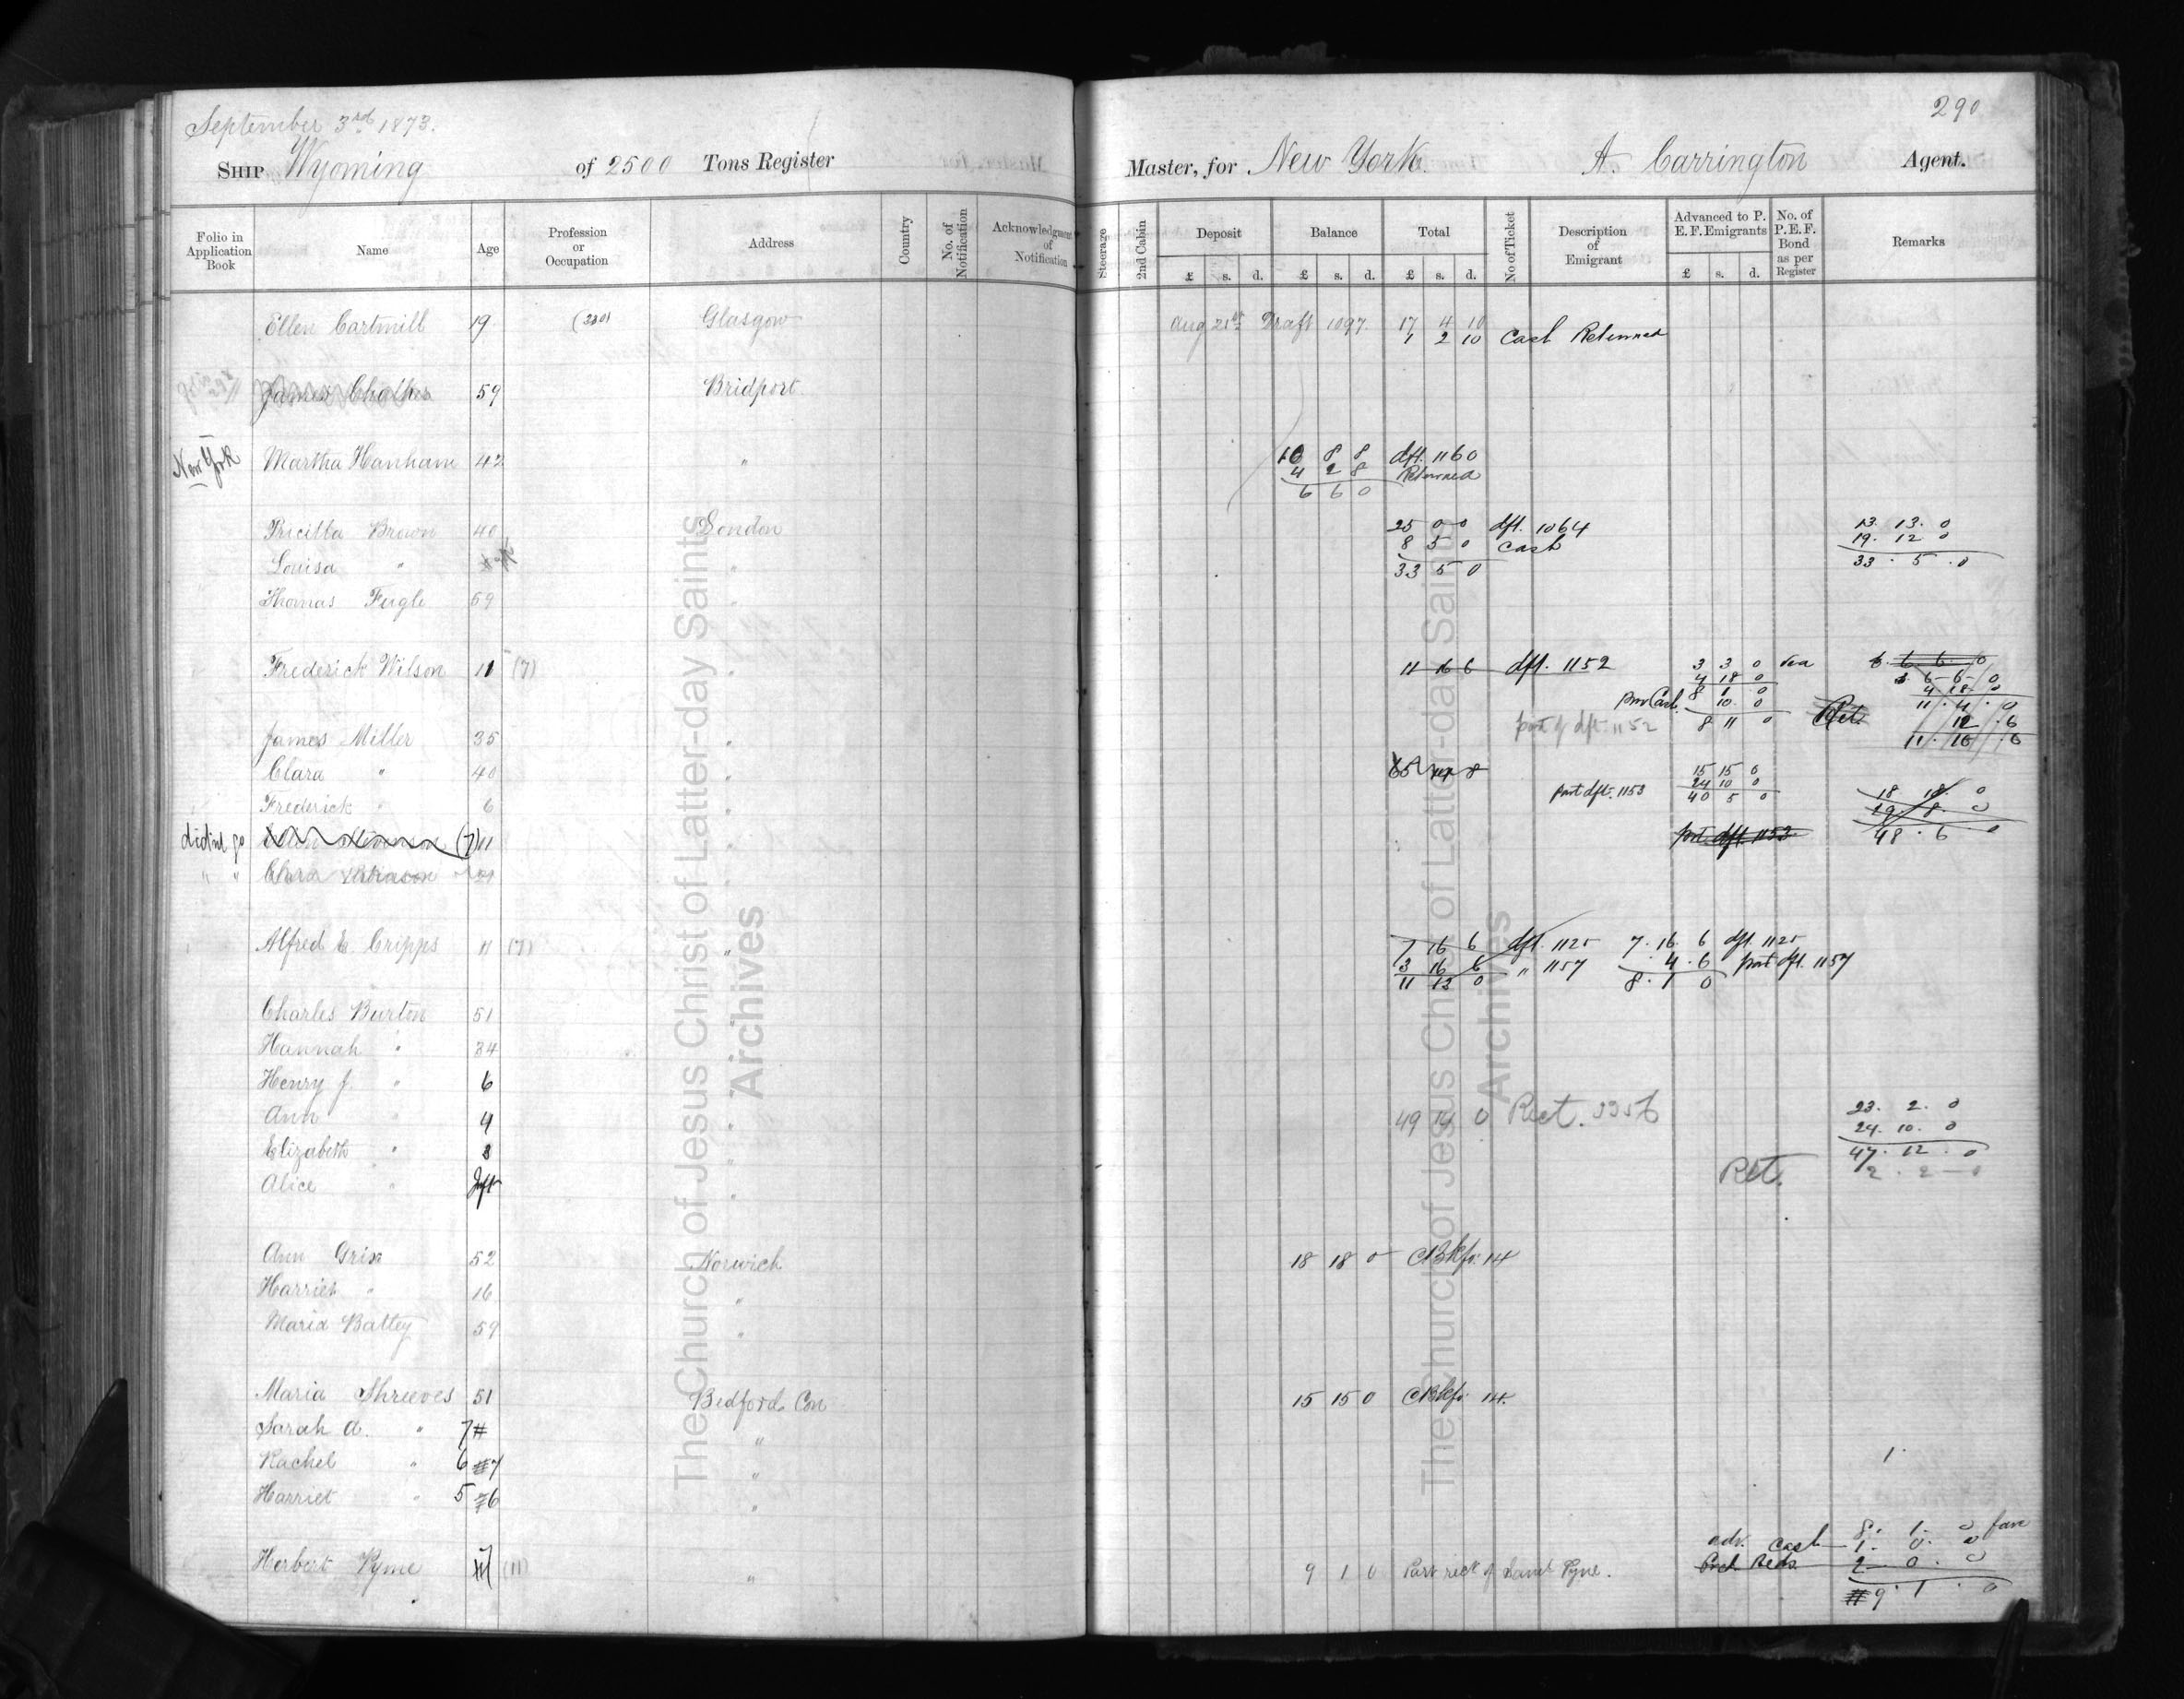 290
September 3rd 1873.
Ship Wyoming of 2500 Tons Register Master, for New York. A. Carrington Agent.
Folio in Application Book Name Age Profession or Occupation Address Country No. of Notification Acknowledgment of Notification Steerage 2nd Cabin Deposit Balance Total No of Ticket Description of Emigrant Advanced to P. E. F. Emigrants No. of P. E. F. Bond as per Register Remarks
£ s. d. £ s. d. £ s. d. £ s. d.
Ellen Cartmill 19 Glasgow Aug 21st Draft 1097. 17 4 10
1 2 10 Cash Returned
James 59 Bridport
New York Martha Hanham 42 " 10 8 8 dft. 1160
4 2 8 Returned
6 6 0
Pricilla Brown 40 London 25 0 0 dft. 1064 13. 13. 0
8 5 0 Cash 19. 12 0
Louisa " " 33 5 0 33. 5. 0
Thomas Fugle 59 "
Frederick Wilson 11 (7) " 11 16 6 dft. 1152 3 3 0 6. 6. 0
4 18 0
8 1 0 4 18 0
Cash 10. 0 11. 4. 0
part of dft. 1152 8 11 0 Ret. 12. 6
11. 16. 6
James Miller 35 "
Clara " 40 " 15 15 0
24 10 0
Frederick " 6 " part dft. 1153 40 5 0 18 18. 0
29. 8. 0
didnt go (7) 11 " part dft. 1152 48. 6 0
" " Clara "
Alfred E. Cripps 11 (7) " 7 16 6 dft. 1125 7. 16. 6 dft. 1125
3 16 6 " 1157 4. 6 part dft. 1157
11 13 0 8. 1 0
Charles Burton 51 "
Hannah " 34 "
Henry J. " 6 "
Ann " 4 " 49 14 0 Rect. 23. 2. 0
24. 10. 0
Elizabeth " 3 " 47. 12. 0
Alice " Inft " Ret. 2. 2 — 0
Ann Grix 52 Norwich 18 18 0 CBkfo. 14
Harriet " 16 "
Maria Battey 59 "
Maria Shreeves 51 Bedford Con 15 15 0 CBkfo. 14.
Sarah A. " 7 "
Rachel " 6 7 "
Harriet " 5 6 "
8. 1. 0 fare
adv. Cash 1. 0. 0
Herbert Pyne (11) " 9 1 0 Part rect of Saml Pyne. Beds 2 0. 0
9. 1. 0
The Church of Jesus Christ of Latter-day Saints
Archives
The Church of Jesus Christ of Latter-day Saints
Archives